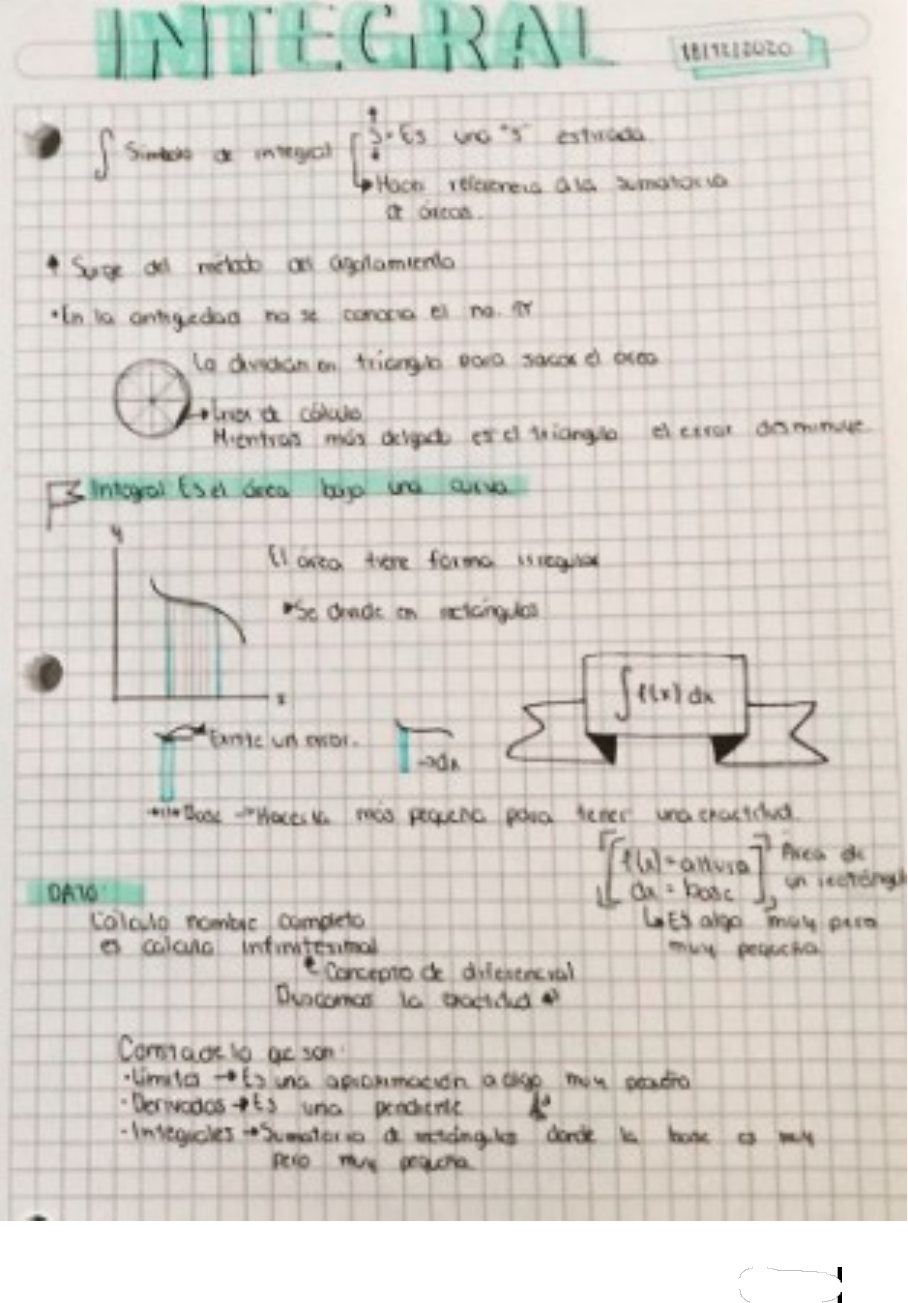 INTEGRAL
18/12/2020
∫ Símbolo de integral
S • Es una "s" estirada
Hace referencia a la sumatoria
de áreas.
Surge del método del agotamiento
• En la antigüedad no se conocía el no. π
La dividían en triángulo para sacar el área
Error de cálculo
Mientras más delgado es el triángulo el error disminuye
Integral Es el área bajo una curva
y
El area tiene forma irregular
Se divide en rectángulos
x
∫ f(x) dx
Existe un error.
→ dx
Base → Hacerla más pequeña para tener una exactitud.
f(x) = altura
dx = base
Área de
un rectángulo
Es algo muy pero
muy pequeña
DATO:
Cálculo nombre completo
es calculo infinitesimal
Concepto de diferencial
Buscamos la exactitud
que son:
• Límites → Es una aproximación a algo muy
• Derivadas → Es una pendiente
• Integrales → Sumatoria de rectángulos donde la base es muy
pero muy pequeña.